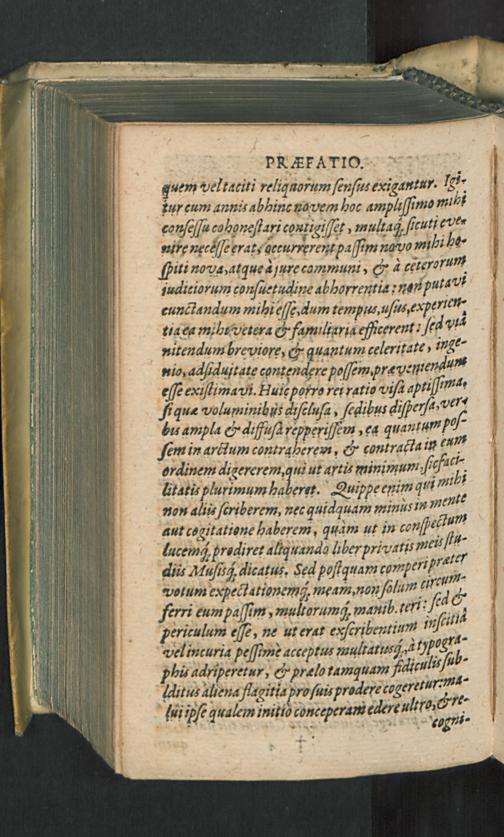 PRÆFATIO.
quem vel taciti reliquorum sensus exigantur. Igi-
tur cum annis abhinc novem hoc amplissimo mihi
consessu cohonestari contigisset, multaq́, sicuti eve-
nire necesse erat, occurrerent passim novo mihi ho-
spiti nova, atque à jure communi, & à ceterorum
iudiciorum consuetudine abhorrentia: non putavi
cunctandum mihi esse, dum tempus, usus, experien-
tia ea mihi vetera & familiaria efficerent: sed viâ
nitendum breviore, & quantum celeritate, inge-
nio, adsiduitate contendere possem, præveniendum
esse existimavi. Huic porro rei ratio visa aptissima,
si quæ voluminibus disclusa, sedibus dispersa, ver-
bis ampla & diffusa repperissem, ea quantum pos-
sem in arctum contraherem, & contracta in eum
ordinem digererem, qui ut artis minimum, sic faci-
litatis plurimum haberet. Quippe enim qui mihi
non aliis scriberem, nec quidquam minùs in mente
aut cogitatione haberem, quàm ut in conspectum
lucemq́, prodiret aliquando liber privatis meis stu-
diis Musisq́, dicatus. Sed postquam comperi præter
votum expectationemq́, meam, non solum circum-
ferri eum passim, multorumq́, manib. teri: sed &
periculum esse, ne ut erat exscribentium inscitiâ
vel incuria pessimè acceptus multatusq́, à typogra-
phis adriperetur, & prælo tamquam fidiculis sub-
lditus aliena flagitia pro suis prodere cogeretur: ma-
lui ipse qualem initio conceperam edere ultro, & re-
cogni-